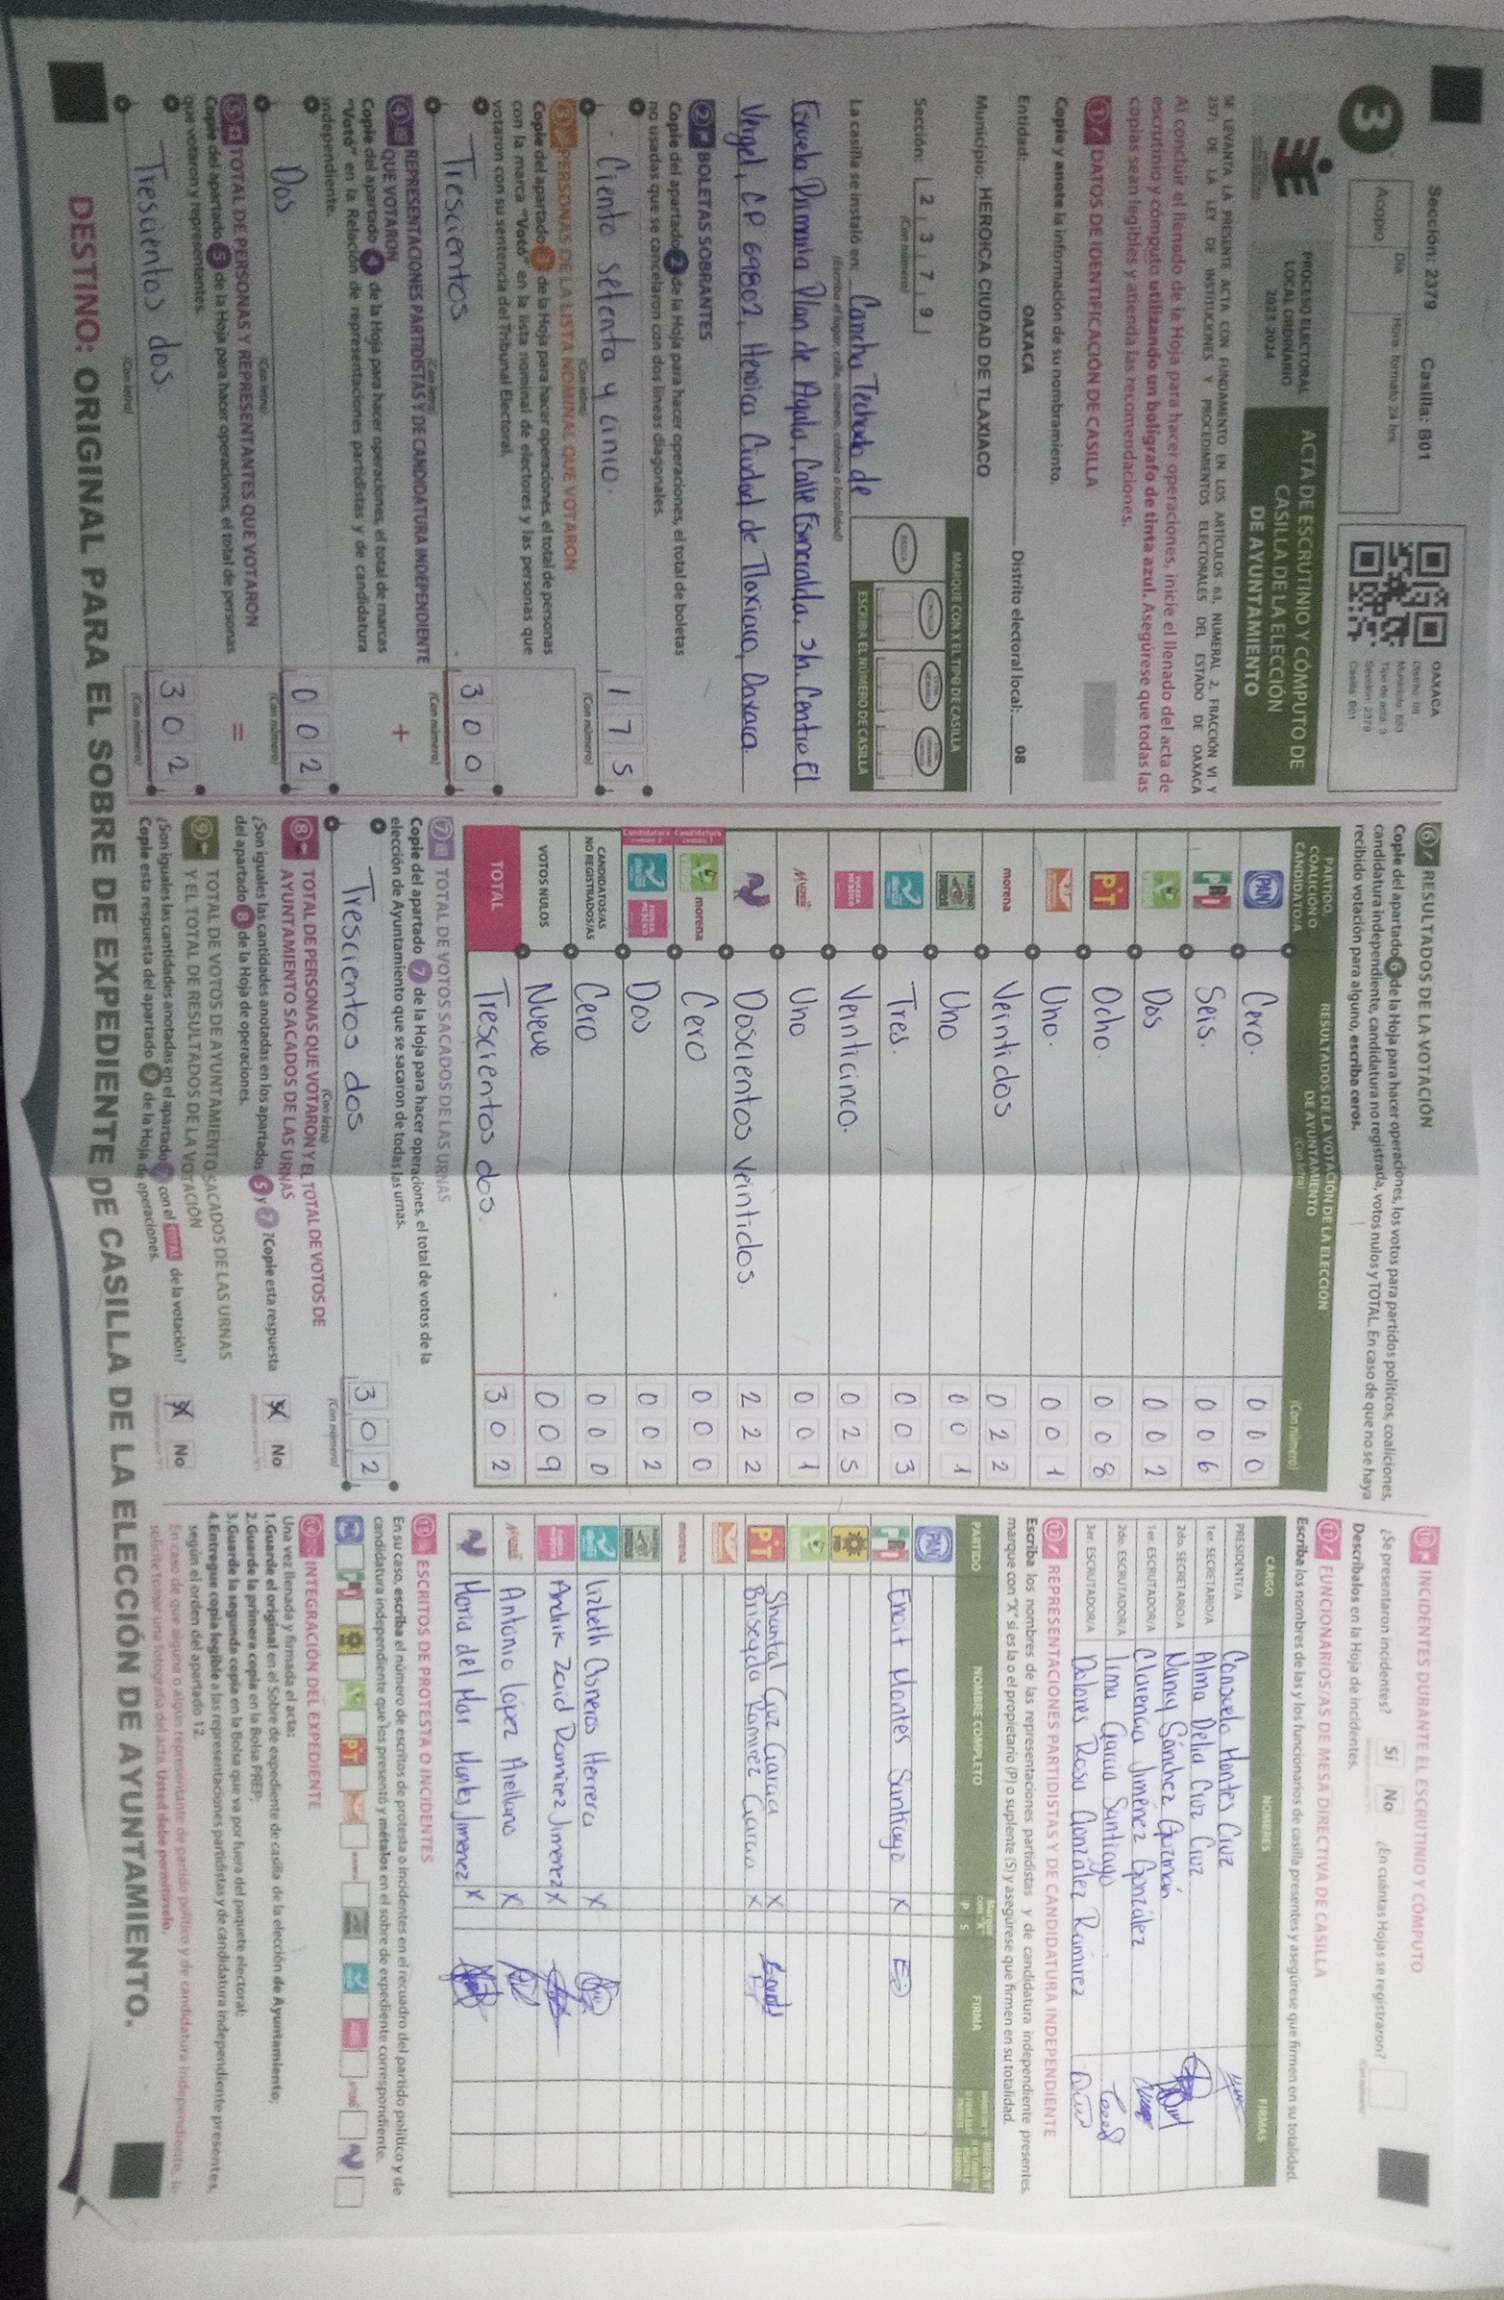 Sección: 2379 Casilla: B01
3
Día Hora formato 24 hrs.
Acopio
OAXACA
Distrito: 08
Tipo de acta: 3
Sección: 2379
Casilla: B01
PROCESO ELECTORAL
LOCAL ORDINARIO
2023-2024
ACTA DE ESCRUTINIO Y CÓMPUTO DE
CASILLA DE LA ELECCIÓN
DE AYUNTAMIENTO
SE LEVANTA LA PRESENTE ACTA CON FUNDAMENTO EN LOS ARTÍCULOS 63, NUMERAL 2, FRACCIÓN VI Y
237; DE LA LEY DE INSTITUCIONES Y PROCEDIMIENTOS ELECTORALES DEL ESTADO DE OAXACA
Al concluir el llenado de la Hoja para hacer operaciones, inicie el llenado del acta de
escrutinio y cómputo utilizando un bolígrafo de tinta azul. Asegúrese que todas las
copias sean legibles y atienda las recomendaciones.
1 DATOS DE IDENTIFICACIÓN DE CASILLA
Copie y anote la información de su nombramiento.
Entidad: OAXACA Distrito electoral local: 08
Municipio: HEROICA CIUDAD DE TLAXIACO
Sección: 2 3 7 9
(Con número)
MARQUE CON X EL TIPO DE CASILLA
BÁSICA
ESCRIBA EL NÚMERO DE CASILLA
La casilla se instaló en: Cancha Techada de
(Escriba el lugar, calle, número, colonia o localidad)
Escuela Primaria Plan de Ayala, Calle Esmeralda, S/n. Centro El
Vergel, CP 69802, Heroica Ciudad de Tlaxiaco, Oaxaca.
2 BOLETAS SOBRANTES
Copie del apartado 2 de la Hoja para hacer operaciones, el total de boletas
no usadas que se cancelaron con dos líneas diagonales.
Ciento setenta y cinco. 1 7 5
(Con letra) (Con número)
3 PERSONAS DE LA LISTA NOMINAL QUE VOTARON
Copie del apartado 3 de la Hoja para hacer operaciones, el total de personas
con la marca "Votó" en la lista nominal de electores y las personas que
votaron con su sentencia del Tribunal Electoral.
Trescientos 3 0 0
(Con letra) (Con número)
4 REPRESENTACIONES PARTIDISTAS Y DE CANDIDATURA INDEPENDIENTE
QUE VOTARON
+
Copie del apartado 4 de la Hoja para hacer operaciones, el total de marcas
"Votó" en la Relación de representaciones partidistas y de candidatura
independiente.
Dos 0 0 2
(Con letra) (Con número)
5 TOTAL DE PERSONAS Y REPRESENTANTES QUE VOTARON
=
Copie del apartado 5 de la Hoja para hacer operaciones, el total de personas
que votaron y representantes.
Trescientos dos 3 0 2
(Con letra) (Con número)
6 RESULTADOS DE LA VOTACIÓN
Copie del apartado 6 de la Hoja para hacer operaciones, los votos para partidos políticos, coaliciones,
candidatura independiente, candidatura no registrada, votos nulos y TOTAL. En caso de que no se haya
recibido votación para alguno, escriba ceros.
PARTIDO, COALICIÓN O CANDIDATO/A
RESULTADOS DE LA VOTACIÓN DE LA ELECCIÓN
DE AYUNTAMIENTO
(Con letra) (Con número)
PAN Cero. 0 0 0
PRI Seis. 0 0 6
Dos 0 0 2
PT Ocho. 0 0 8
Uno. 0 0 1
morena Veintidos 0 2 2
Uno 0 0 1
Tres. 0 0 3
Veinticinco. 0 2 5
Uno 0 0 1
Doscientos veintidos. 2 2 2
morena Cero 0 0 0
Dos 0 0 2
CANDIDATOS/AS NO REGISTRADOS/AS Cero 0 0 0
VOTOS NULOS Nueve 0 0 9
TOTAL Trescientos dos. 3 0 2
7 TOTAL DE VOTOS SACADOS DE LAS URNAS
Copie del apartado 7 de la Hoja para hacer operaciones, el total de votos de la
elección de Ayuntamiento que se sacaron de todas las urnas.
Trescientos dos 3 0 2
(Con letra) (Con número)
8 TOTAL DE PERSONAS QUE VOTARON Y EL TOTAL DE VOTOS DE
AYUNTAMIENTO SACADOS DE LAS URNAS
¿Son iguales las cantidades anotadas en los apartados 5 y 7? Copie esta respuesta
del apartado 8 de la Hoja de operaciones.
No
9 TOTAL DE VOTOS DE AYUNTAMIENTO SACADOS DE LAS URNAS
Y EL TOTAL DE RESULTADOS DE LA VOTACIÓN
¿Son iguales las cantidades anotadas en el apartado 7 con el TOTAL de la votación?
Copie esta respuesta del apartado 9 de la Hoja de operaciones.
No
10 INCIDENTES DURANTE EL ESCRUTINIO Y CÓMPUTO
¿Se presentaron incidentes? Sí No ¿En cuántas Hojas se registraron?
Descríbalos en la Hoja de incidentes.
11 FUNCIONARIOS/AS DE MESA DIRECTIVA DE CASILLA
Escriba los nombres de las y los funcionarios de casilla presentes y asegúrese que firmen en su totalidad.
CARGO NOMBRES FIRMAS
PRESIDENTE/A Consuelo Montes Cruz
1er. SECRETARIO/A Alma Delia Cruz Cruz
2do. SECRETARIO/A Nancy Sánchez Guzmán
1er. ESCRUTADOR/A Clarencia Jiménez González
2do. ESCRUTADOR/A Irma García Santiago
3er. ESCRUTADOR/A Dolores Rosa González Ramírez
12 REPRESENTACIONES PARTIDISTAS Y DE CANDIDATURA INDEPENDIENTE
Escriba los nombres de las representaciones partidistas y de candidatura independiente presentes,
marque con "X" si es la o el propietario (P) o suplente (S) y asegúrese que firmen en su totalidad.
PARTIDO NOMBRE COMPLETO P S FIRMA
PAN
PRI Enoit Montes Santiago X
PT Shantal Cruz Garcia X
Briseyda Ramirez Garcia X
morena
Lizbeth Cisneros Herrera X
Ardik Zaid Ramirez Jimenez X
Antonio López Arellano X
Maria del Mar Montes Jimenez X
13 ESCRITOS DE PROTESTA O INCIDENTES
En su caso, escriba el número de escritos de protesta o incidentes en el recuadro del partido político y de
candidatura independiente que los presentó y métalos en el sobre de expediente correspondiente.
14 INTEGRACIÓN DEL EXPEDIENTE
Una vez llenada y firmada el acta:
1. Guarde el original en el Sobre de expediente de casilla de la elección de Ayuntamiento;
2. Guarde la primera copia en la Bolsa PREP;
3. Guarde la segunda copia en la Bolsa que va por fuera del paquete electoral;
4. Entregue copia legible a las representaciones partidistas y de candidatura independiente presentes,
según el orden del apartado 12.
En caso de que alguna o algún representante de partido político y de candidatura independiente, le
solicite tomar una fotografía del acta, Usted debe permitírselo.
DESTINO: ORIGINAL PARA EL SOBRE DE EXPEDIENTE DE CASILLA DE LA ELECCIÓN DE AYUNTAMIENTO.